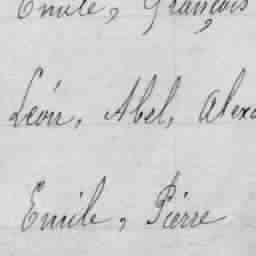 Emile, François
Léon, Abel, Alex
Emile, Pierre